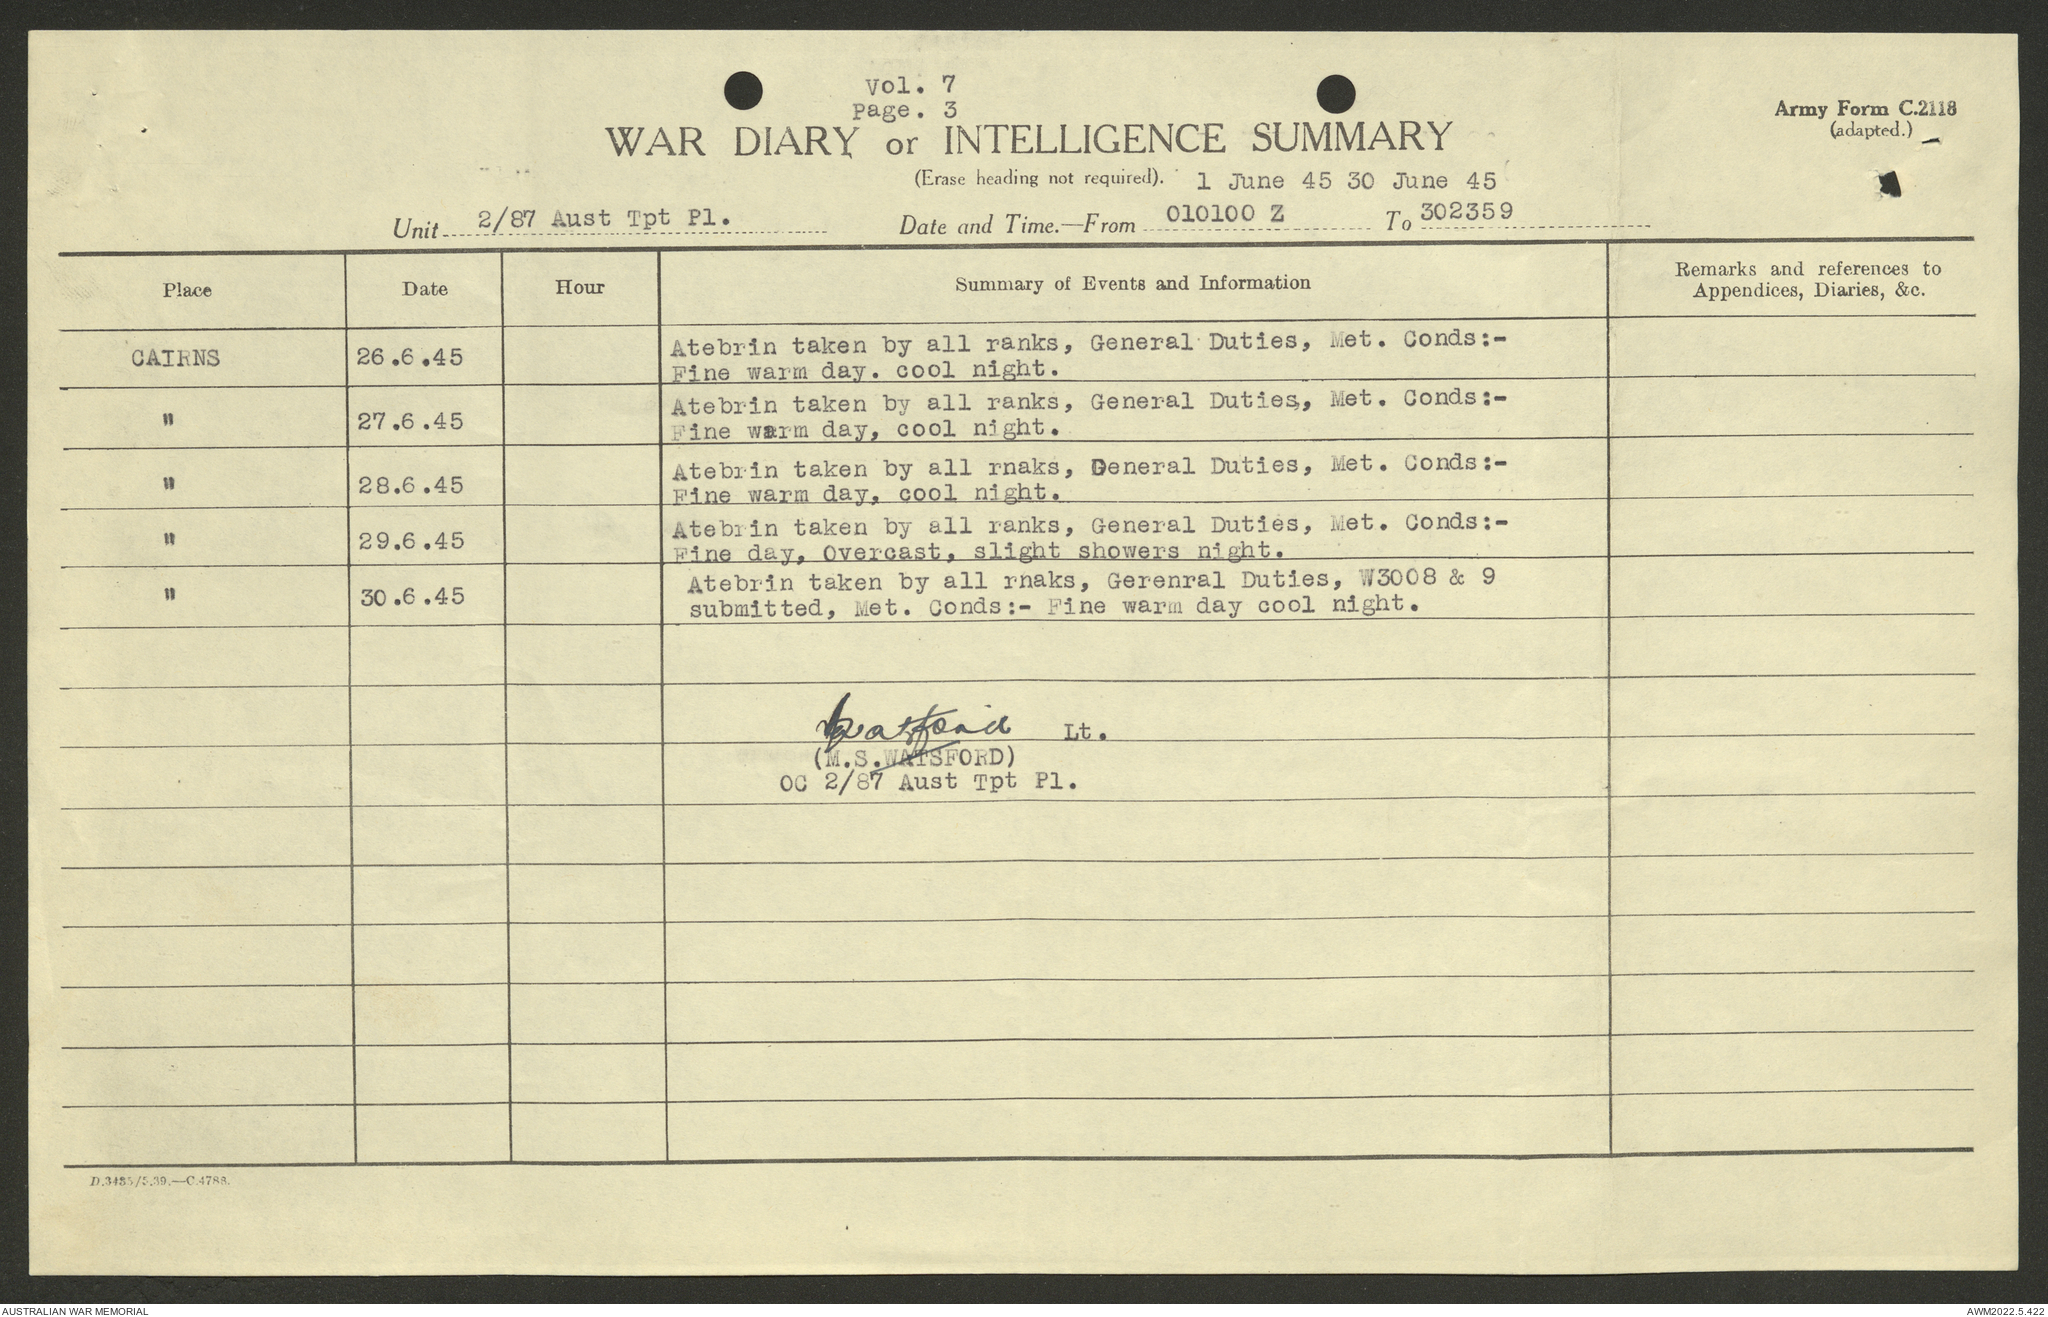 Vol. 7
Page. 3
Army Form C.2118
(adapted.)
WAR DIARY or INTELLIGENCE SUMMARY
(Erase heading not required). 1 June 45 30 June 45
Unit 2/87 Aust Tpt Pl. Date and Time.—From 010100 Z To 302359
Place Date Hour Summary of Events and Information Remarks and references to
Appendices, Diaries, &c.
CAIRNS 26.6.45 Atebrin taken by all ranks, General Duties, Met. Conds:-
Fine warm day. cool night.
" 27.6.45 Atebrin taken by all ranks, General Duties, Met. Conds:-
Fine warm day, cool night.
" 28.6.45 Atebrin taken by all rnaks, General Duties, Met. Conds:-
Fine warm day, cool night.
" 29.6.45 Atebrin taken by all ranks, General Duties, Met. Conds:-
Fine day, Overcast, slight showers night.
" 30.6.45 Atebrin taken by all rnaks, Gerenral Duties, W3008 & 9
submitted, Met. Conds:- Fine warm day cool night.
Watsford Lt.
(M.S.WATSFORD)
OC 2/87 Aust Tpt Pl.
D.3435/5.39.—C.4786.
AUSTRALIAN WAR MEMORIAL AWM2022.5.422